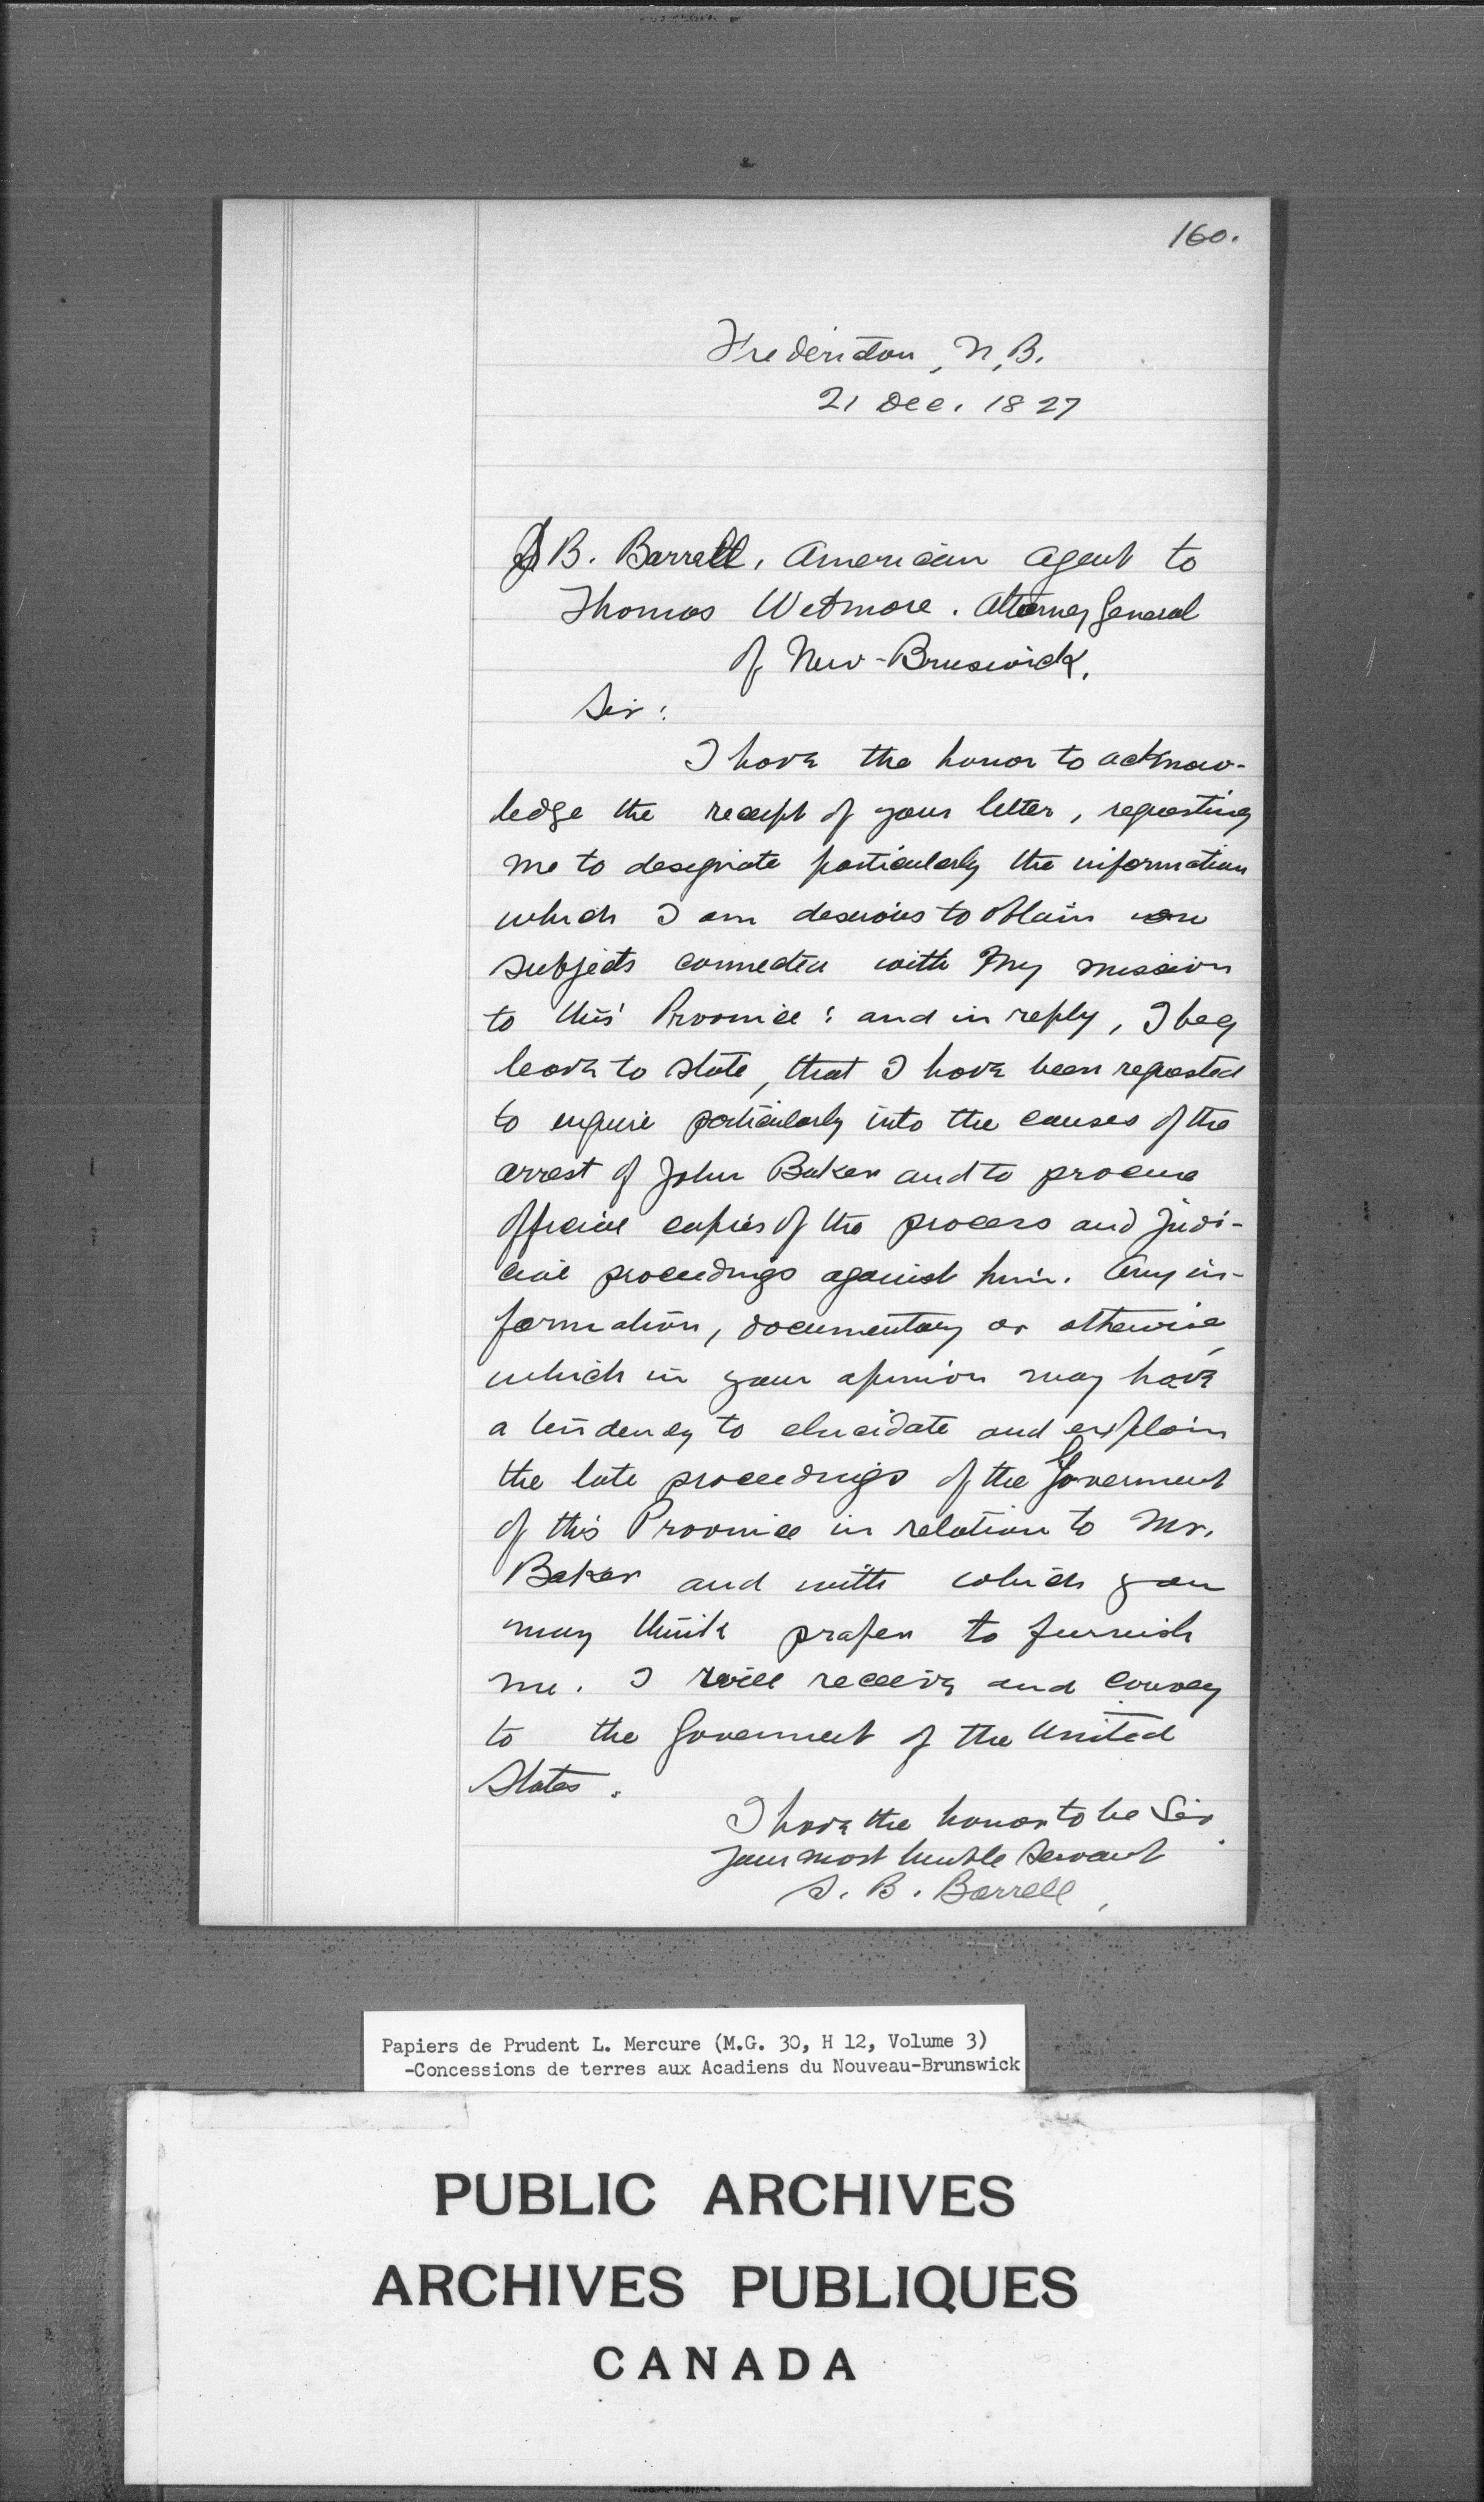 160.
Fredericton, N.B.
21 Dec. 1827
S B. Barrell, American agent to
Thomas Wetmore. Attorney General
of New-Brunswick.
Sir:
I have the honor to acknow-
ledge the receipt of your letter, requesting
me to designate particularly the information
which I am desirous to obtain on
subjects connected with my mission
to this Province: and in reply, I beg
leave to state, that I have been requested
to enquire particularly into the causes of the
arrest of John Baker and to procure
official copies of the process and judi-
cial proceedings against him. Any in-
formation, documentary or otherwise
which in your opinion may have
a tendency to elucidate and explain
the late proceedings of the Goverment
of this Province in relation to Mr.
Baker and with which you
may think proper to furnish
me. I will receive and convey
to the Goverment of the United
States.
I have the honor to be Sir
your most humble servant
S. B. Barrell
Papiers de Prudent L. Mercure (M.G. 30, H 12, Volume 3)
-Concessions de terres aux Acadiens du Nouveau-Brunswick
PUBLIC ARCHIVES
ARCHIVES PUBLIQUES
CANADA